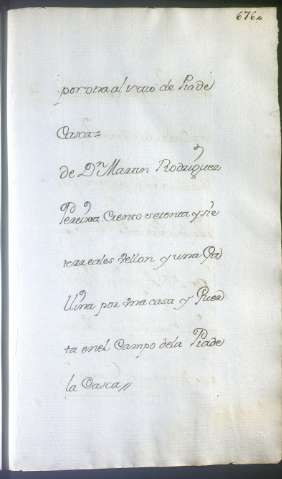 676
por otra al varo de Piade
Casca=
de Dn Martin Rodriguez
Pereira Ciento setenta y sie
te rreales Vellon y una Ga
llina por una casa y Huer
ta en el Campo dela Piade
la Casca//